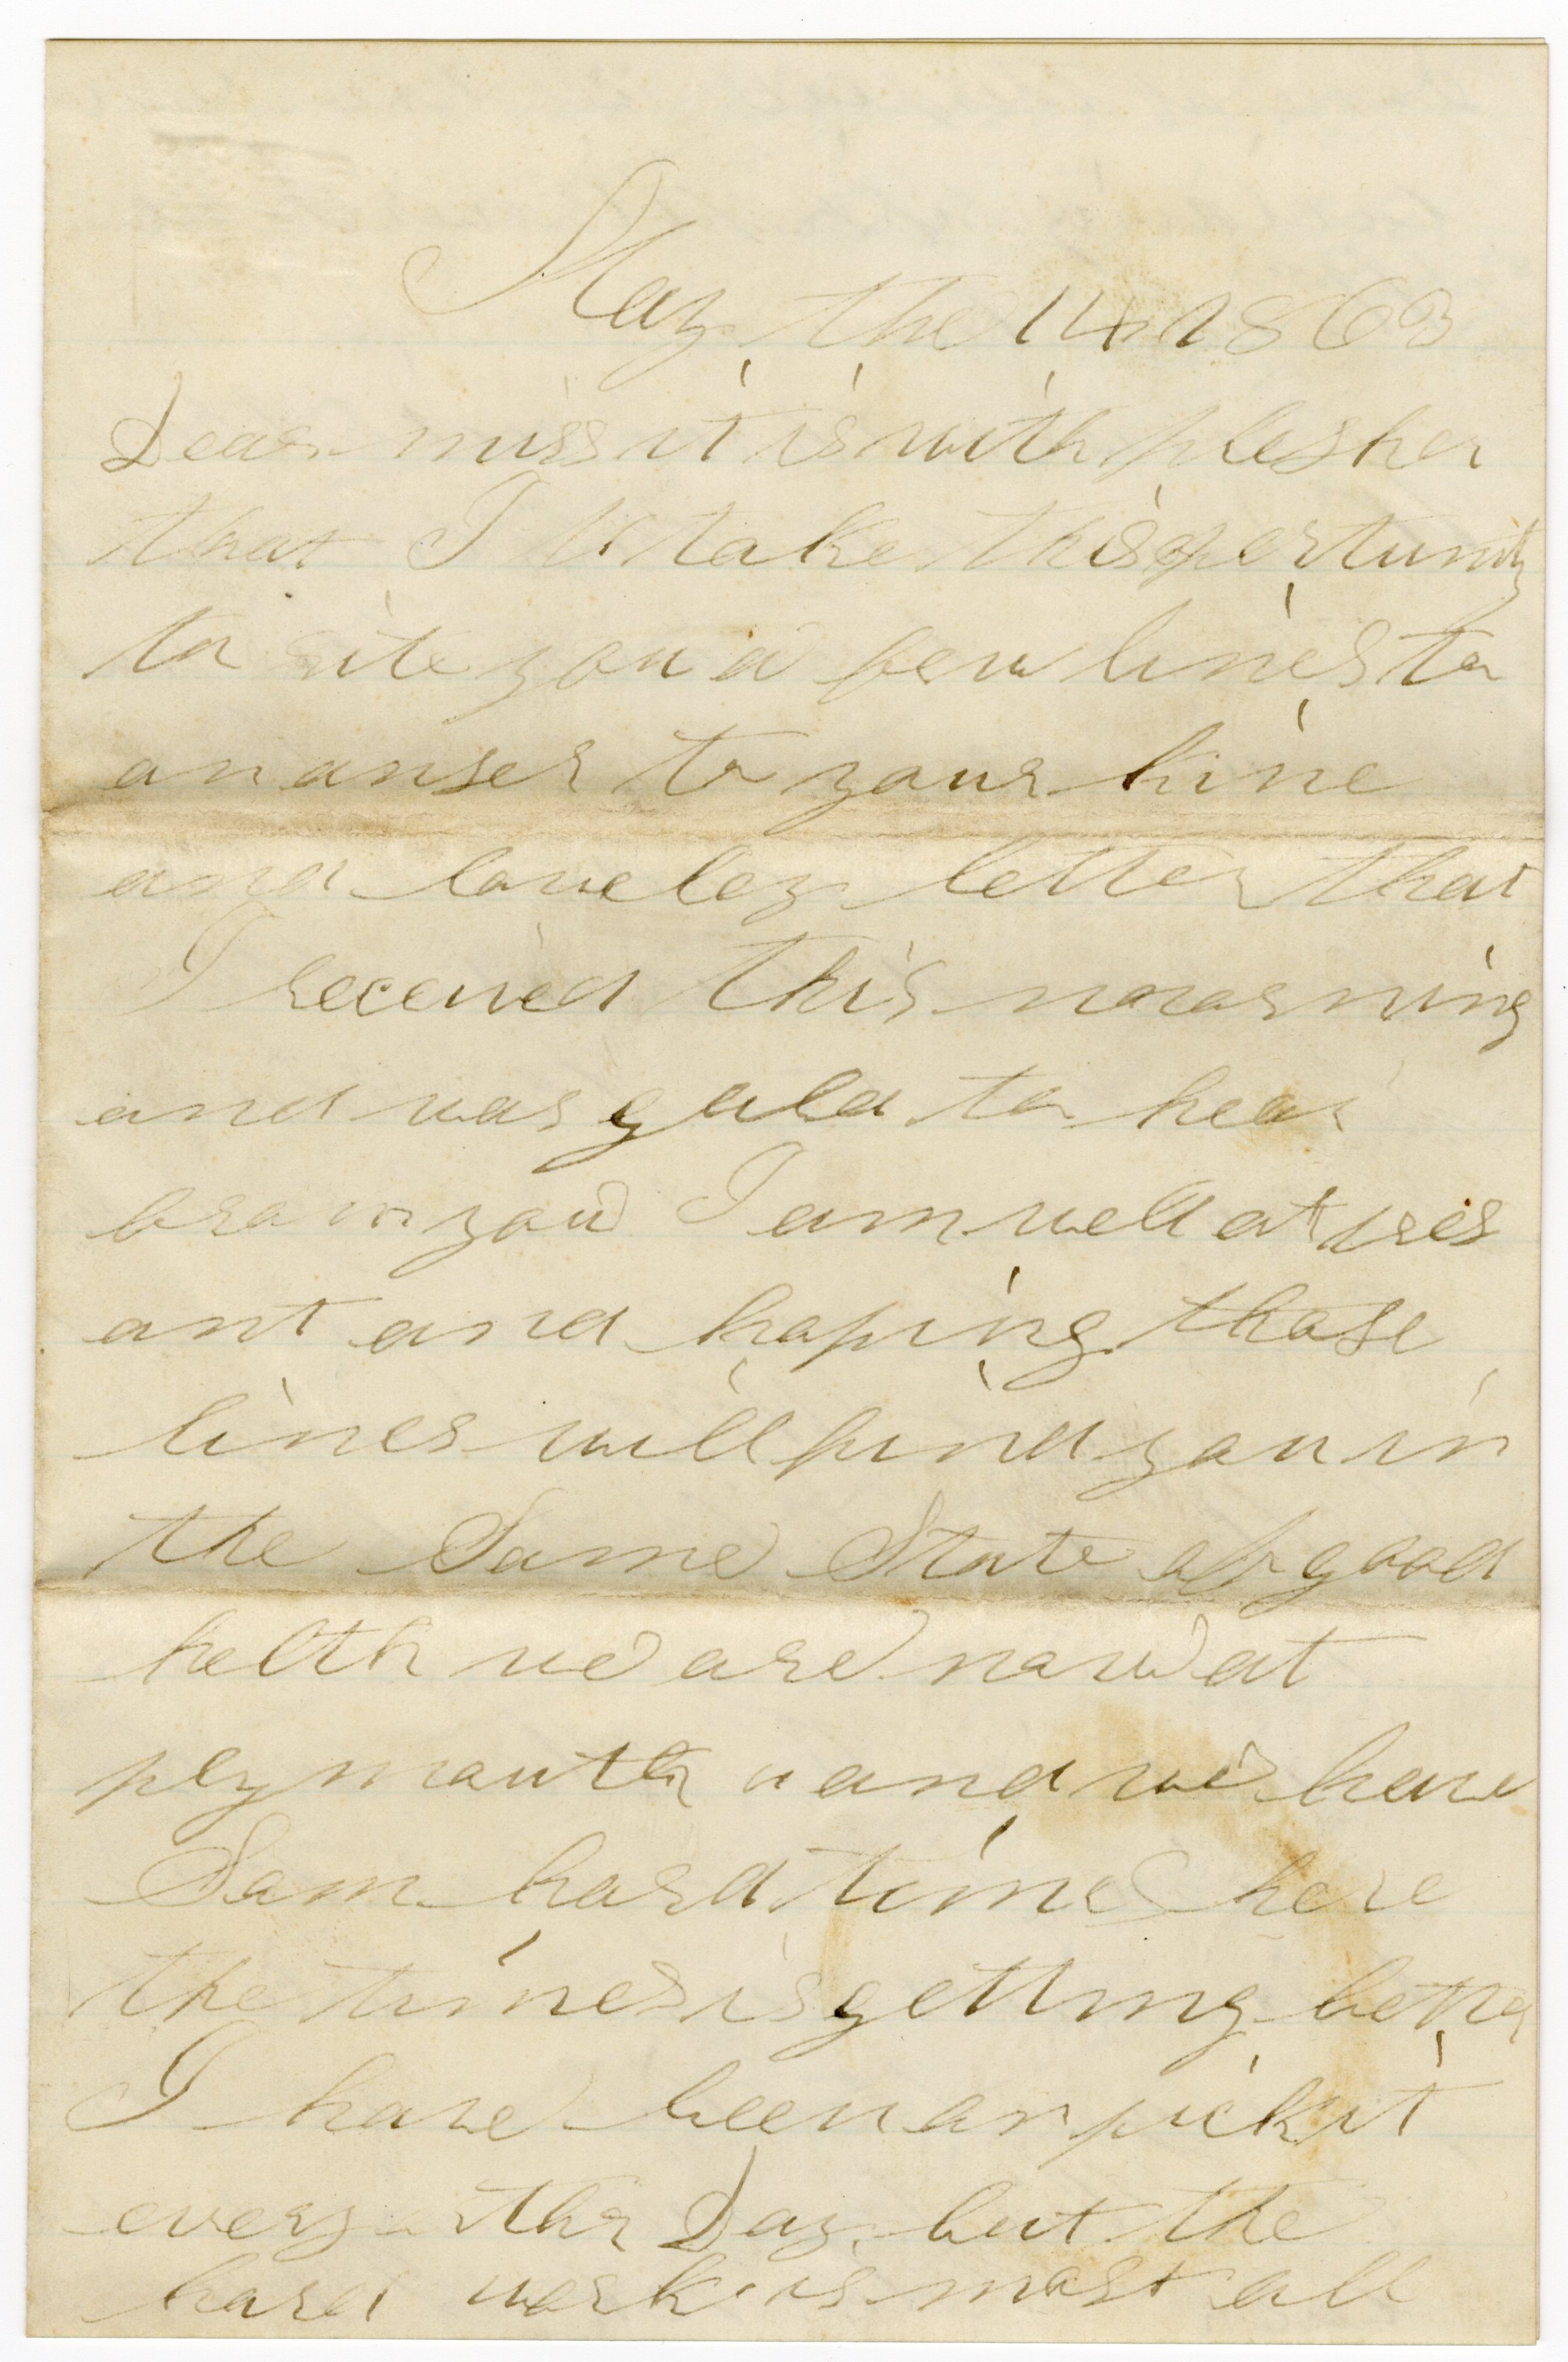 May the 14 1863
Dear miss it is with plesher
that I take this opertunity
to rite you a few lines to
an anser to your kine
and loveley letter that
I received this morarning
and was gald to hear
from you I am well at pres
ant and hoping those
lines will find you in
the Same State of good
helth we are now at
plymouth and we have
Som hard times here
the times is getting bether
I have been on pickit
every othr Day but the
hard work is most all